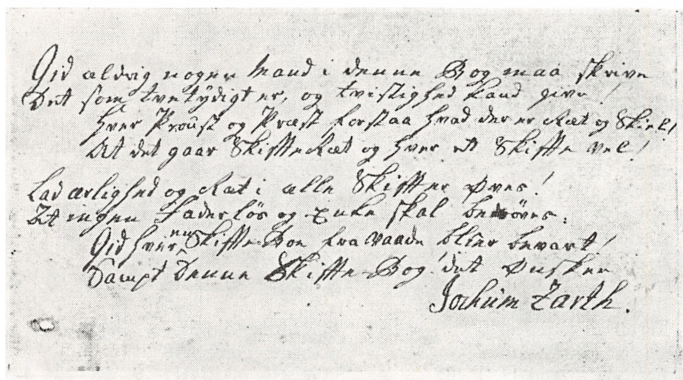 Gid aldrig nogen Mand i denne Bog maa skrive
Det som tvetydigt er, og tvistighed kand give!
Hver Proust og Præst forstaa hvad der er Ræt og Skiel!
At det gaar Skifte Ræt og hver ett Skifte vel!
Lad ærlighed og Ræt i alle Skifter øves!
At ingen Faderløs og Enke skal berøves.
Gid hver en Skifte-Boe fra Vaade blier bevart!
Sampt Denne Skifte-Bog! det ønsker
Jochim Zarth.